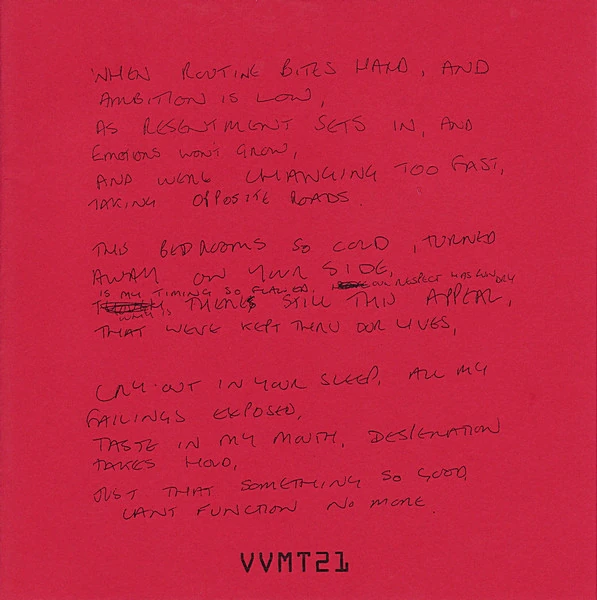 WHEN ROUTINE BITES HARD, AND
AMBITION IS LOW,
AS RESENTMENT SETS IN, AND
EMOTIONS WON'T GROW,
AND WERE CHANGING TOO FAST,
TAKING OPPOSITE ROADS.
THIS BEDROOMS SO COLD, TURNED
AWAY ON YOUR SIDE,
IS MY TIMING SO FLAWED. OUR RESPECT HAS RUN DRY
THERES STILL THIS APPEAL,
WHY IS
THAT WE'VE KEPT THRU OUR LIVES,
CRY OUT IN YOUR SLEEP, ALL MY
FAILINGS EXPOSED,
TASTE IN MY MOUTH, DESPERATION
TAKES HOLD,
JUST THAT SOMETHING SO GOOD
CANT FUNCTION NO MORE.
VVMT21